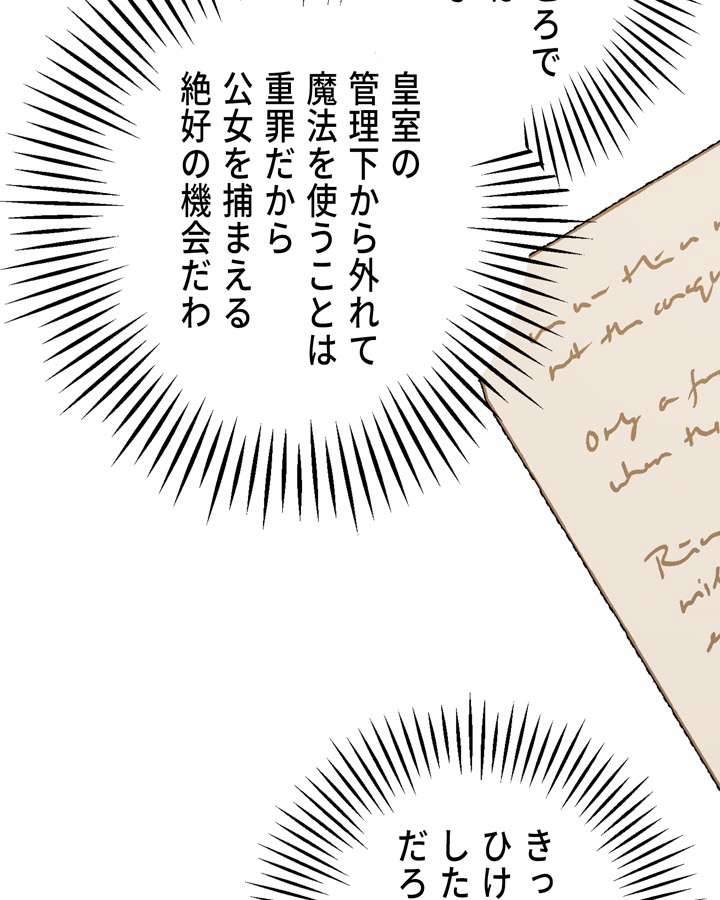 ろで
皇室の
管理下から外れて
魔法を使うことは
重罪だから
公女を捕まえる
絶好の機会だわ
Only a
when the
きっ
ひけ
した
だろ